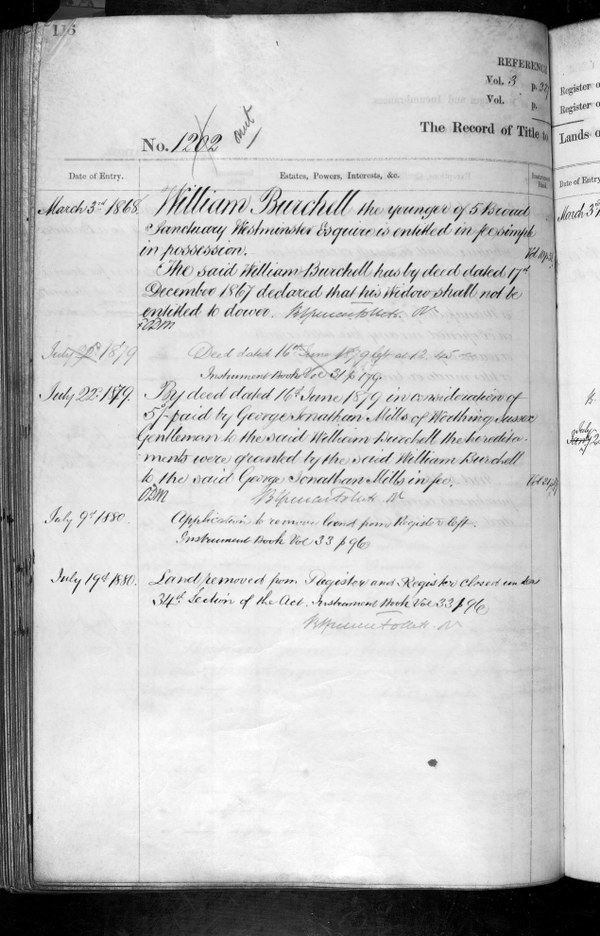 116
REFERENC
Vol. 3 p.
Vol. p.
The Record of Title to
No. 1202 out
Date of Entry.
Estates, Powers, Interests, &c.
March 3rd 1868.
William Burchell the younger of 5 Broad
Sanctuary Westminster Esquire is entitled in fee simple
in possession.
The said William Burchell has by deed dated 17th
December 1867 declared that his Widow shall not be
entitled to dower.
July 1879
Deed dated 16th June 1879 left at 12.45
Instrument Book Vol 31 p 179.
July 22d 1879.
By deed dated 16th June 1879 in consideration of
5/- paid by George Jonathan Mills of Worthing Sussex
Gentleman to the said William Burchell the heredita-
ments were granted by the said William Burchell
to the said George Jonathan Mills in fee.
July 9th 1880.
Application to remove land from Register left.
Instrument Book Vol 33 p 96
July 19th 1880.
Land removed from Register and Register closed under
34th Section of the Act. Instrument Book Vol 33 p 96
Register o
Register o
Lands o
Date of Entry
March 3rd
July